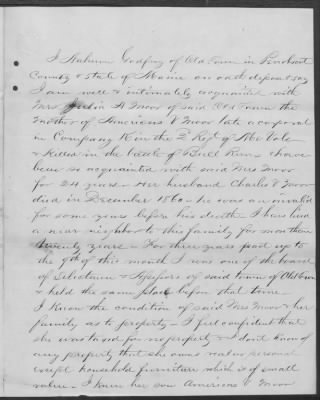 I Nahum Godfrey of Old Town in Penobscot
County & State of Maine on oath depose & say
I am well & intimately acquainted with
Mrs Julia A Moor of said Old Town the
mother of Americus V Moor late a corporal
in Company K in the 2 Regt of Me Vols
& killed in the battle of Bull Run I have
been so acquainted with said Mrs Moor
for 24 years - Her husband Charles V Moor
died in December 1860 - he was an invalid
for some years before his death - I have lived
a near neighbor to this family for more than
twenty years - For three years past up to
the 9th of this month I was one of the board
of Selectmen & Assessors of said town of Old Town
& held the same place before that time
I know the condition of said Mrs Moor & her
family as to property - I feel confident that
she was taxed for no property & I don't know of
any property that she owns real or personal
except household furniture which is of small
value - I knew her son Americus V Moor